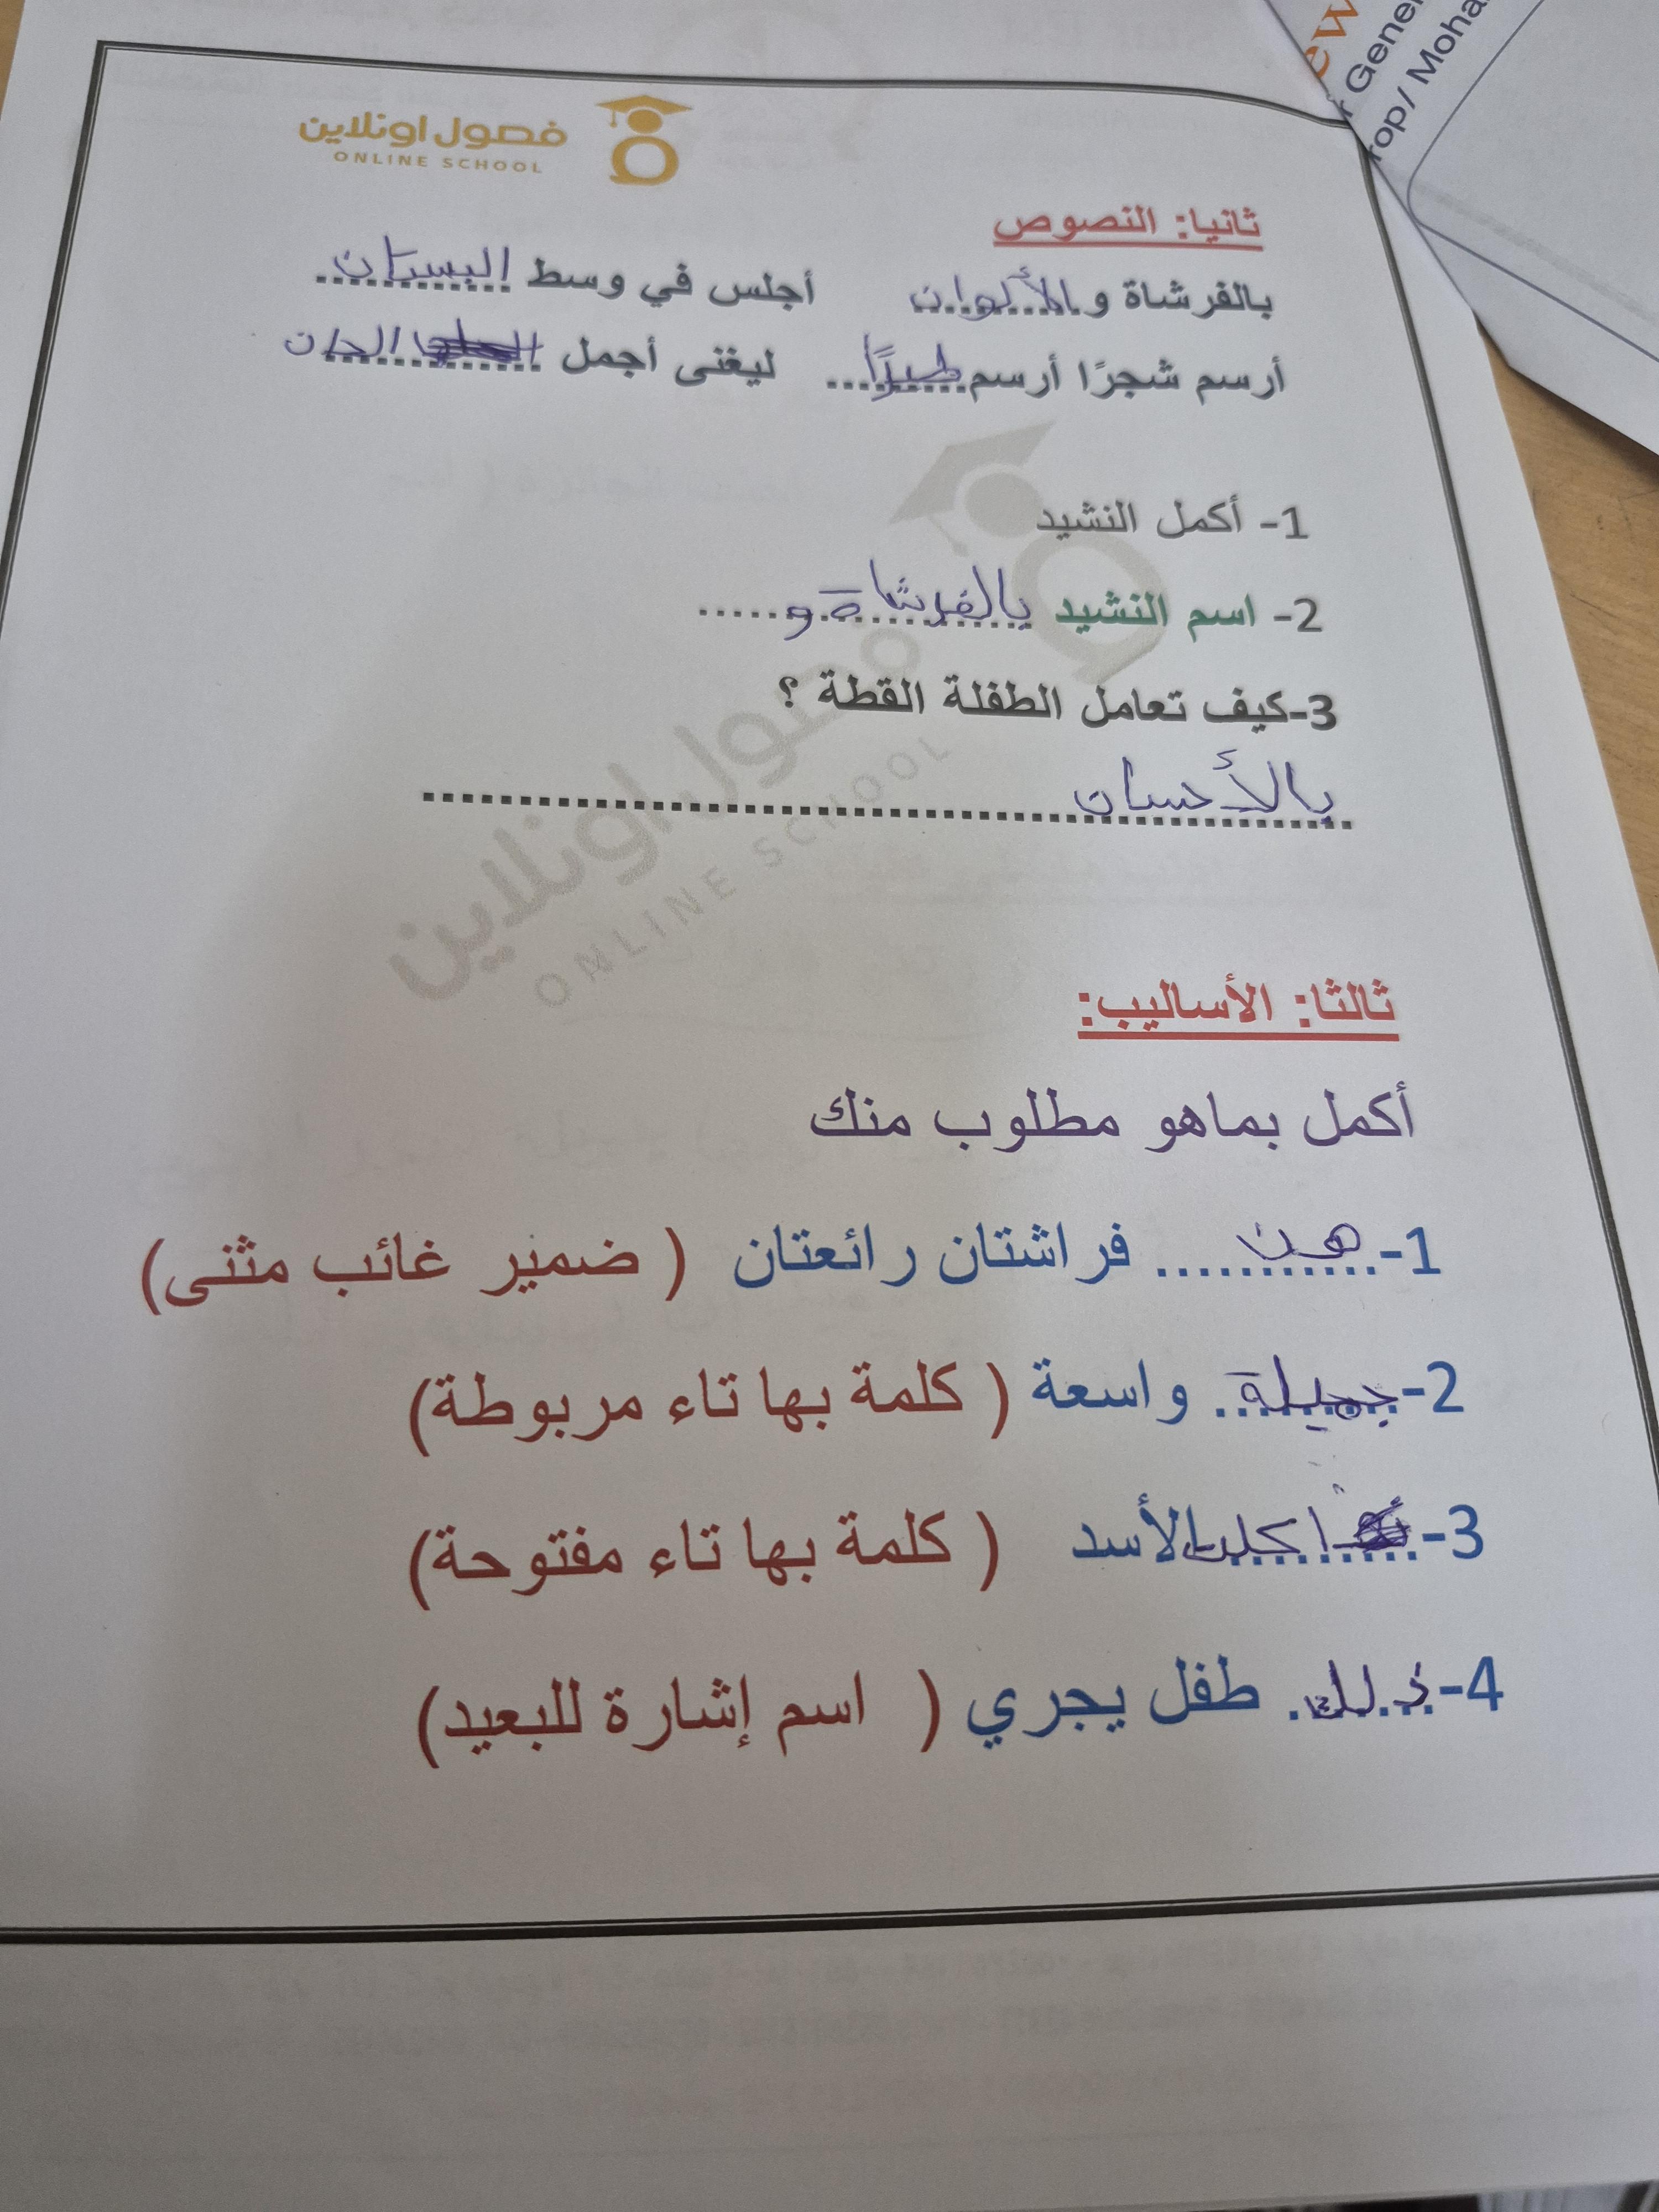 فصول اونلاين
ONLINE SCHOOL
ew
r Gener
rop/ Moha
ثانيا: النصوص
بالفرشاة و الألوان أجلس في وسط البستان.
أرسم شجرًا أرسم طيرًا... ليغنى أجمل الحان
1- أكمل النشيد
2- اسم النشيد بالفرشاة و.....
3-كيف تعامل الطفلة القطة ؟
بالأحسان
فصول اونلاين
ONLINE SCHOOL
ثالثا: الأساليب:
أكمل بماهو مطلوب منك
1- هن .... فراشتان رائعتان ( ضمير غائب مثنى)
2- جميلة. واسعة ( كلمة بها تاء مربوطة)
3- اكلت الأسد ( كلمة بها تاء مفتوحة)
4- ذلك. طفل يجري ( اسم إشارة للبعيد)